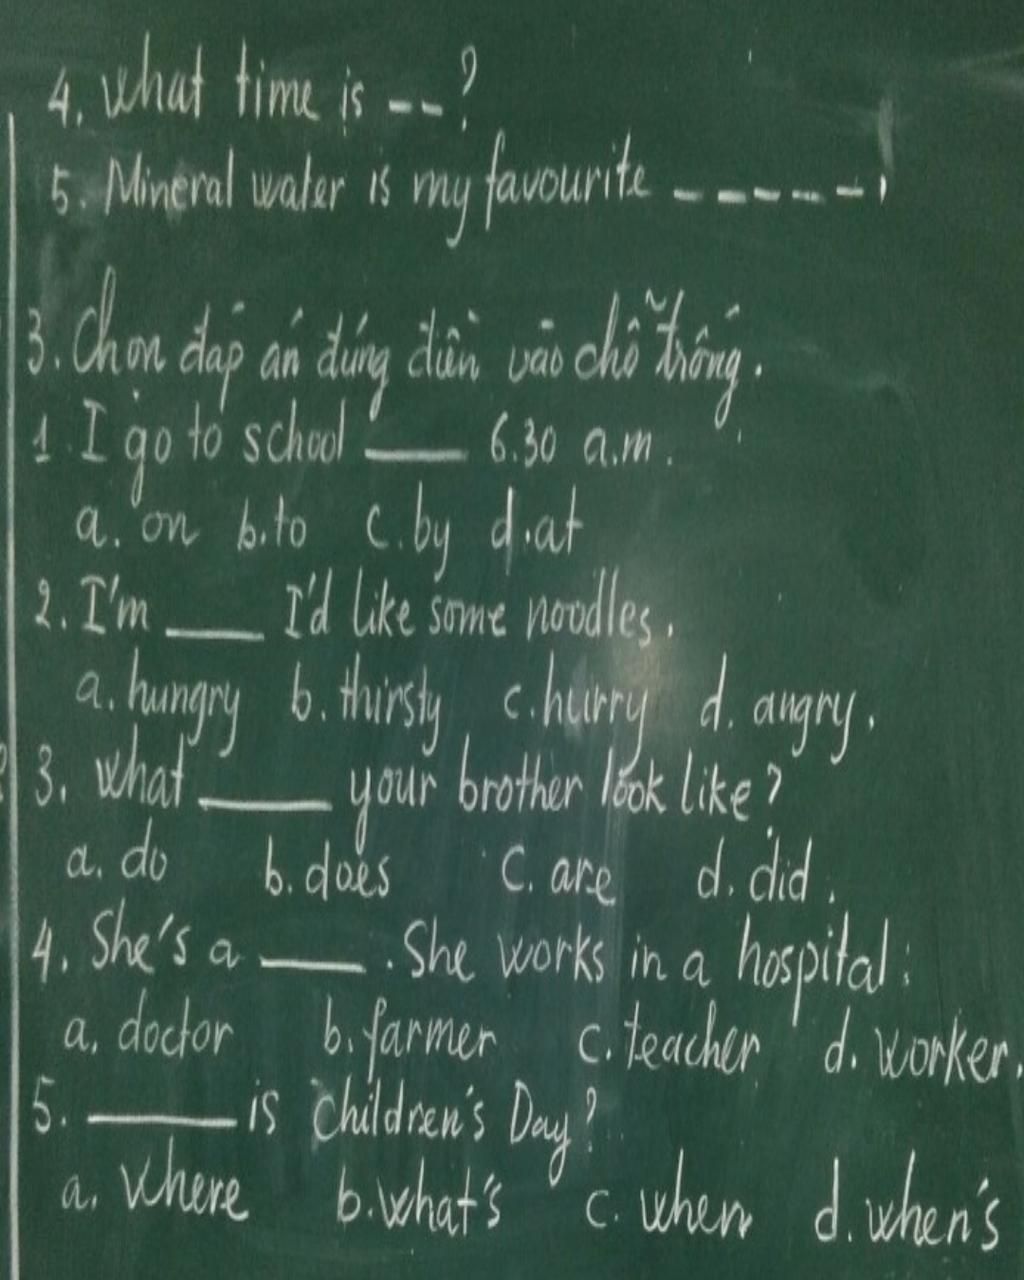 4. What time is -- ?
5. Mineral water is my favourite -----.
3. Chọn đáp án đúng điền vào chỗ trống.
1. I go to school ____ 6.30 a.m.
a. on b. to c. by d. at
2. I'm ____ I'd like some noodles.
a. hungry b. thirsty c. hurry d. angry.
3. What _____ your brother look like?
a. do b. does c. are d. did.
4. She's a ____. She works in a hospital.
a. doctor b. farmer c. teacher d. worker.
5. ______ is children's Day?
a. where b. what's c. when d. when's